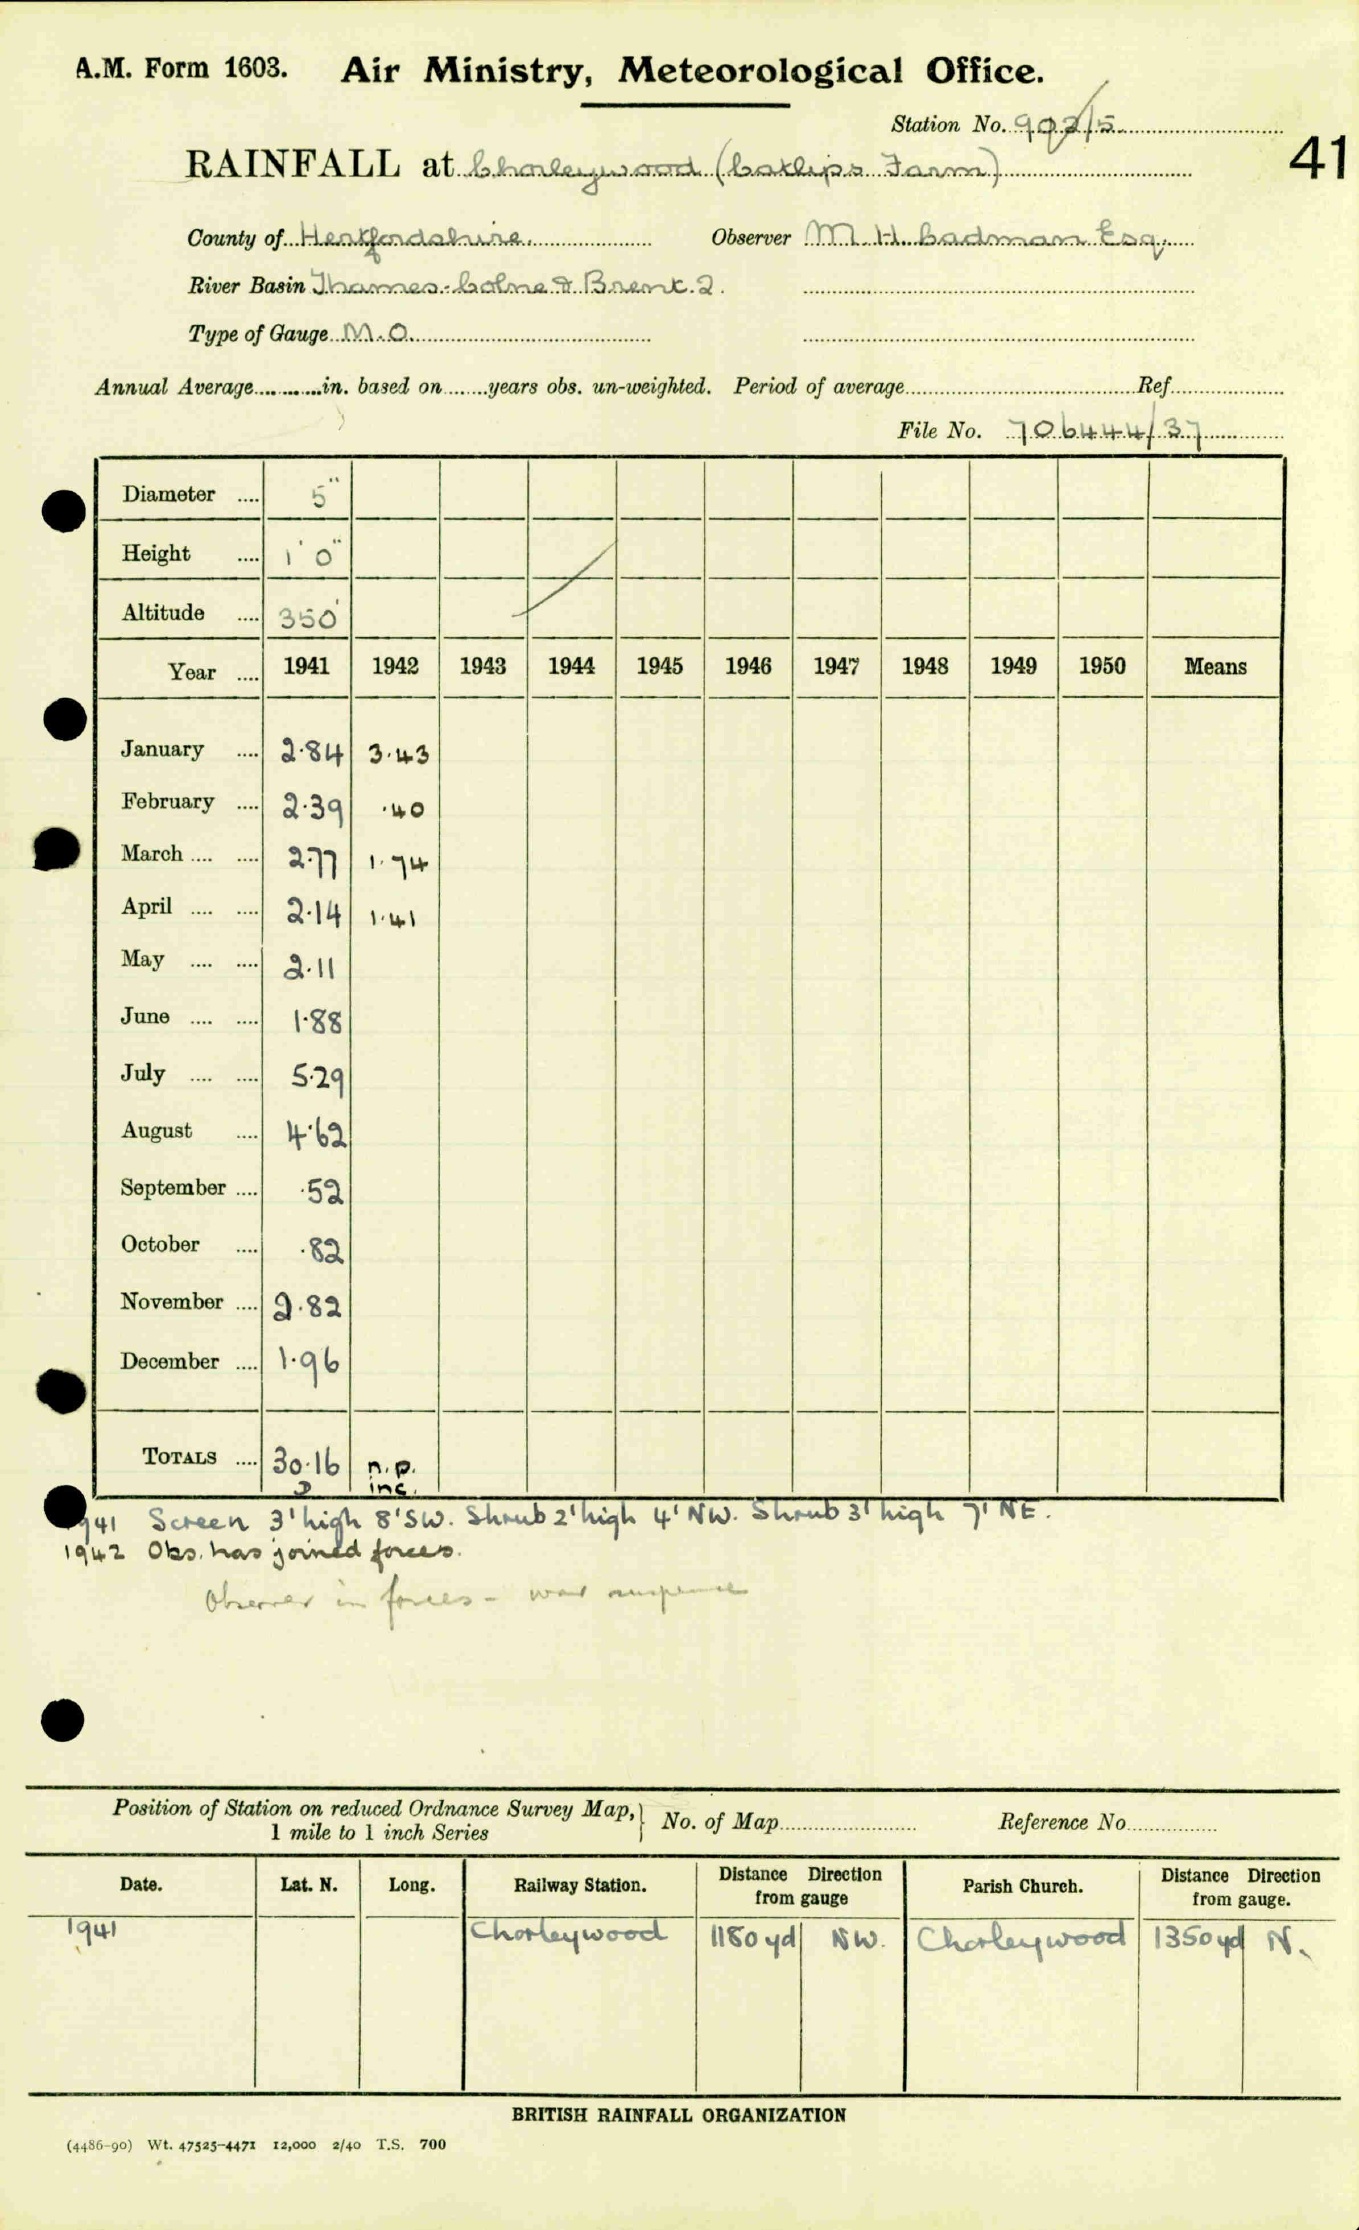 A.M. Form 1603. Air Ministry, Meteorological Office.
Station No. 902/5
41
RAINFALL at Chorleywood (Catlips Farm)
County of Hertfordshire. Observer M. H. Cadman Esq.
River Basin Thames-Colne & Brent. 2.
Type of Gauge M.O.
Annual Average.......in. based on.......years obs. un-weighted. Period of average.......Ref.......
File No. 706444/37
Diameter .... 5"
Height .... 1' 0"
Altitude .... 350'
Year .... 1941 1942 1943 1944 1945 1946 1947 1948 1949 1950 Means
January .... 2.84 3.43
February .... 2.39 .40
March .... .... 2.77 1.74
April .... .... 2.14 1.41
May .... .... 2.11
June .... .... 1.88
July .... .... 5.29
August .... 4.62
September .... .52
October .... .82
November .... 2.82
December .... 1.96
TOTALS .... 30.16 n.p.
inc.
1941 Screen 3' high 8' SW. Shrub 2' high 4' NW. Shrub 3' high 7' NE.
1942 Obs. has joined forces.
Observer in forces - war suspense
Position of Station on reduced Ordnance Survey Map, } No. of Map....... Reference No.......
1 mile to 1 inch Series
Date. Lat. N. Long. Railway Station. Distance Direction from gauge Parish Church. Distance Direction from gauge.
1941 Chorleywood 1180 yd NW. Chorleywood 1350 yd N.
BRITISH RAINFALL ORGANIZATION
(4486-90) Wt. 47525-4471 12,000 2/40 T.S. 700